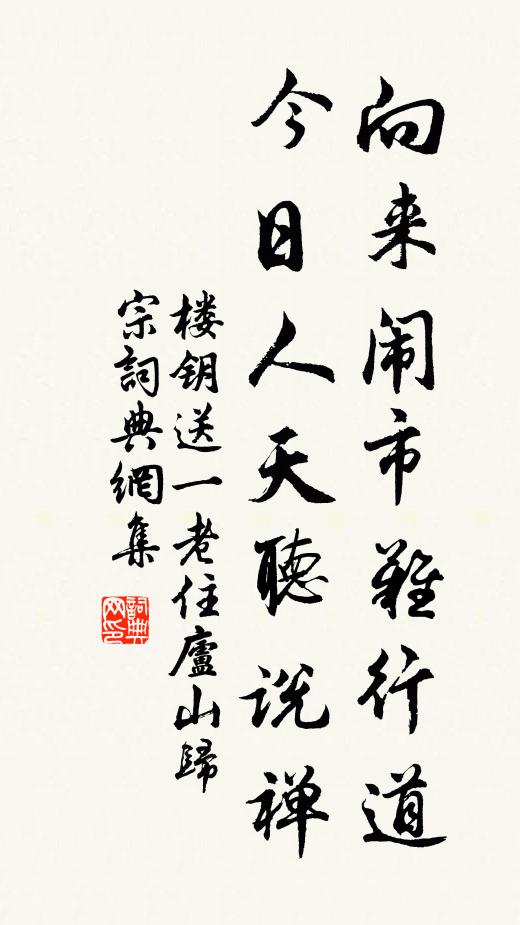 向来闹市難行道
今日人天聽说禅
楼钥送一老住廬山歸
宗詞典網集
詞典网印